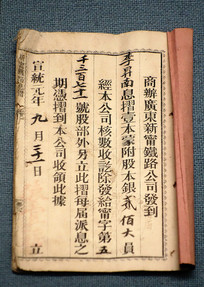 商辦廣東新甯鐵路公司發到
李昇南息摺壹本蒙附股本銀貳佰大員
經本公司核數收訖除發給甯字第五
千二百七十一號股部外另立此摺每屆派息之
期憑摺到本公司收領此據
宣統元年九月三十一日 立